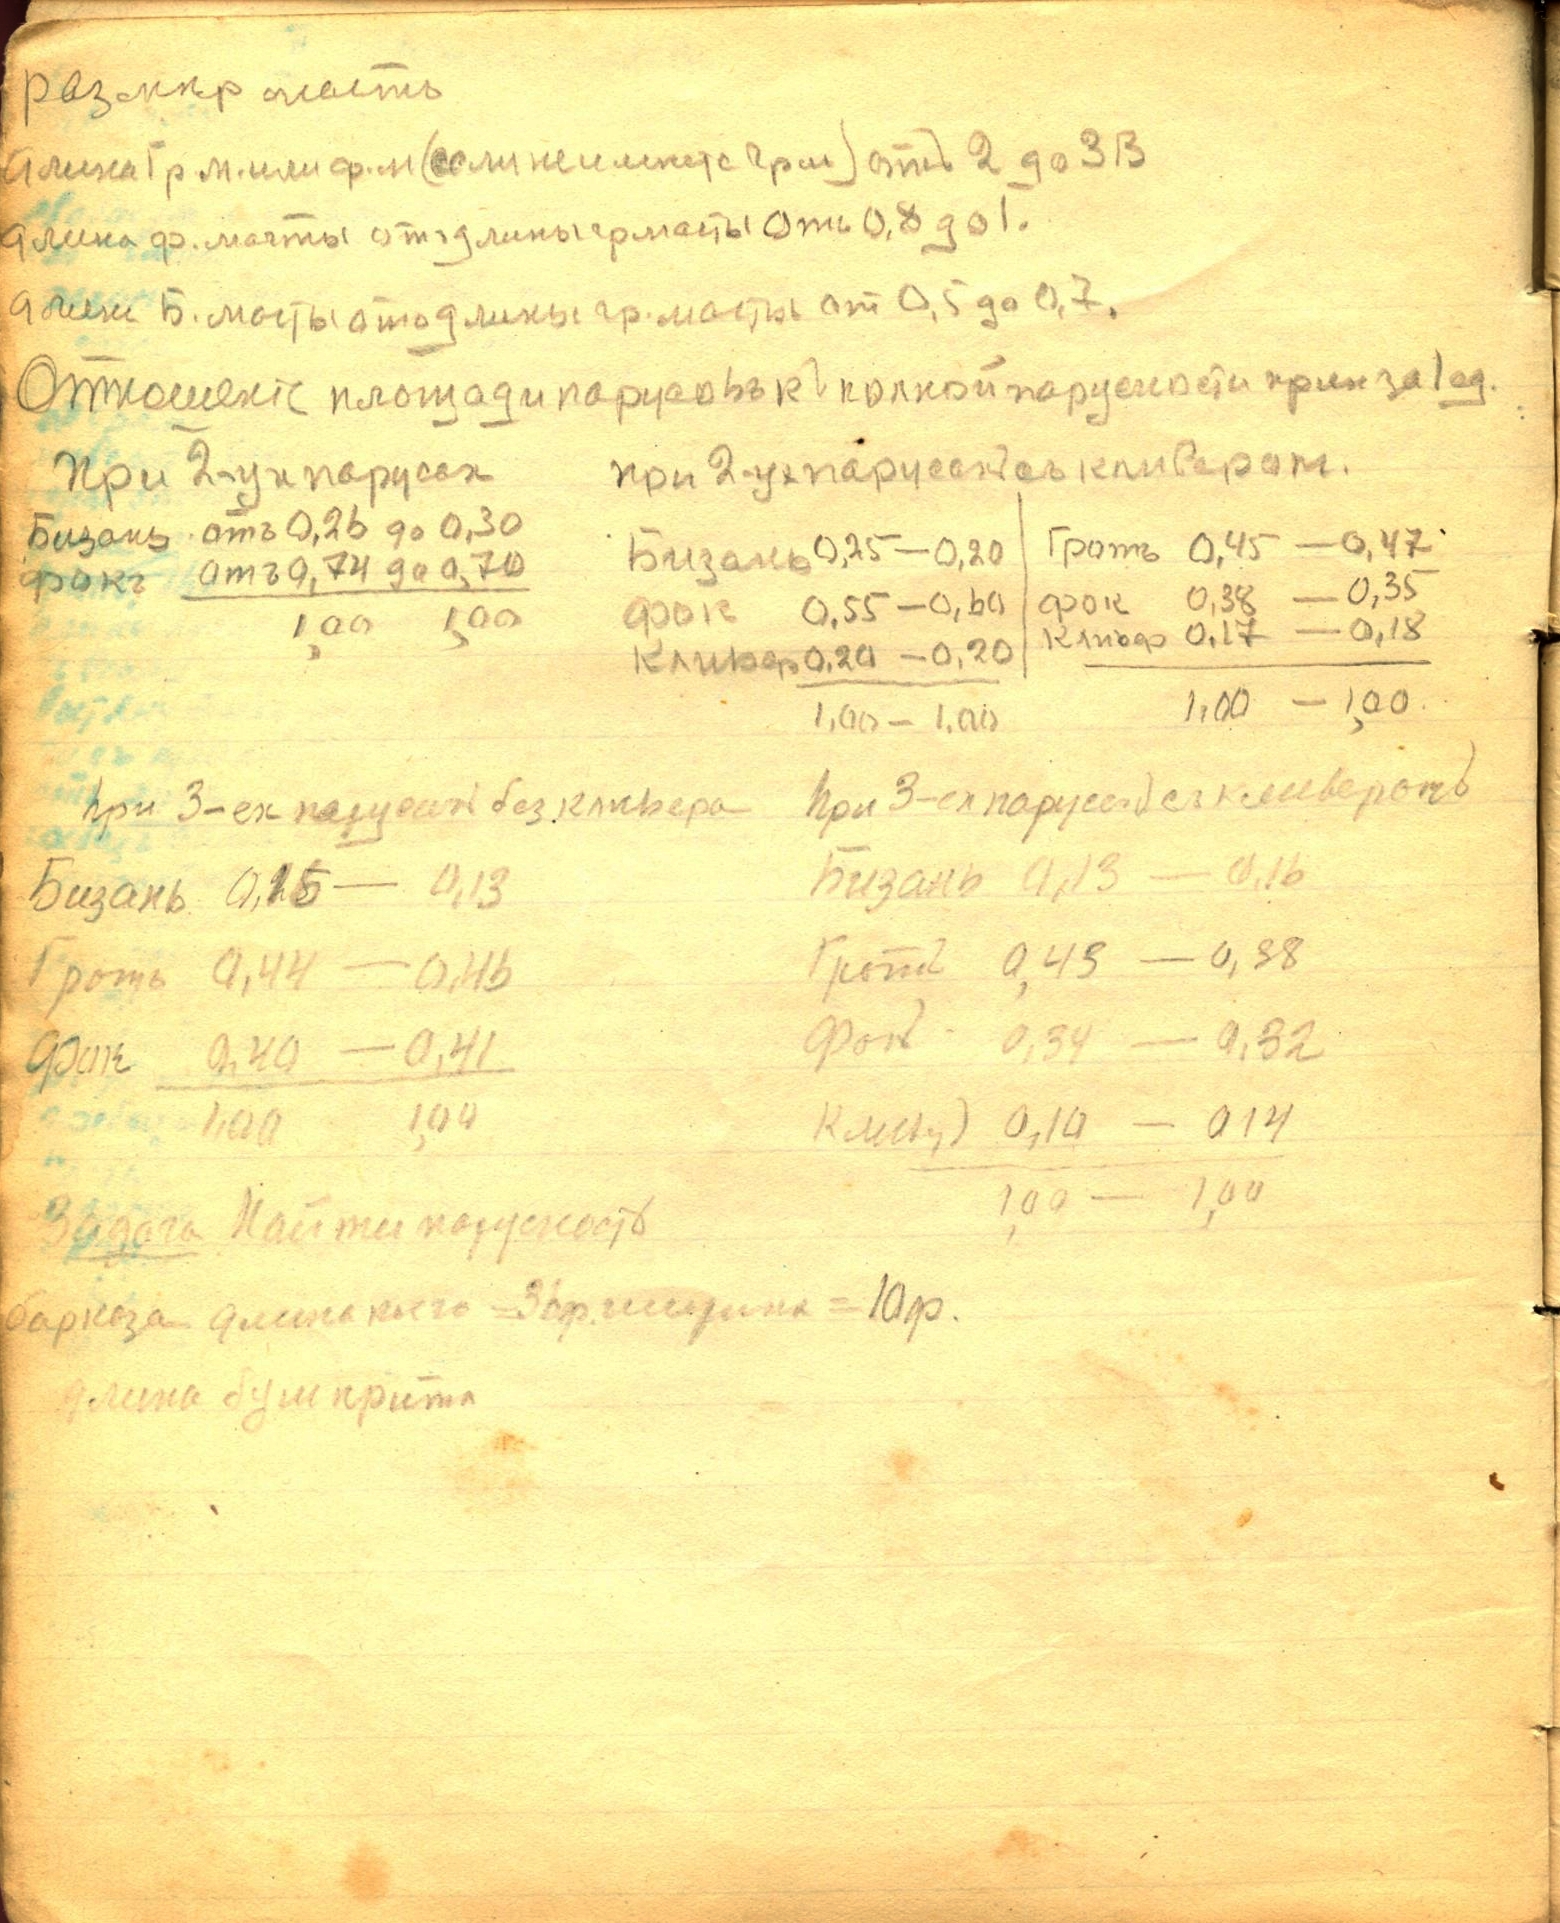 размѣр мачтъ
длина Гр.м. или ф.м (если не имеется гр.м) отъ 2 до 3 B
длина ф. мачты отъ длины гр мачты отъ 0,8 до 1.
длина Б. мачты отъ длины гр. мачты от 0,5 до 0,7.
Отношеніе площади парусовъ къ полной парусности прин за 1 ед.
При 2-ух парусах
Бизань отъ 0,26 до 0,30
фокъ отъ 0,74 до 0,70
1,00 1,00
при 2-ух парусахъ съ кливером.
Бизань 0,25 — 0,20
фок 0,55 — 0,60
Кливер 0,20 — 0,20
1,00 — 1,00
Гротъ 0,45 — 0,47
фок 0,38 — 0,35
Кливер 0,17 — 0,18
1,00 — 1,00
при 3-ех парусахъ без кливера
Бизань 0,15 — 0,13
Гротъ 0,44 — 0,46
Фок 0,40 — 0,41
1,00 1,00
При 3-ех парусахъ съ кливеромъ
Бизань 0,13 — 0,16
Гротъ 0,43 — 0,38
Фокъ 0,34 — 0,32
Кливер 0,10 — 0 14
1,00 — 1,00
Задача Найти парусность
баркаса длина коего = 36 ф. ширина = 10 ф.
длина бушприта